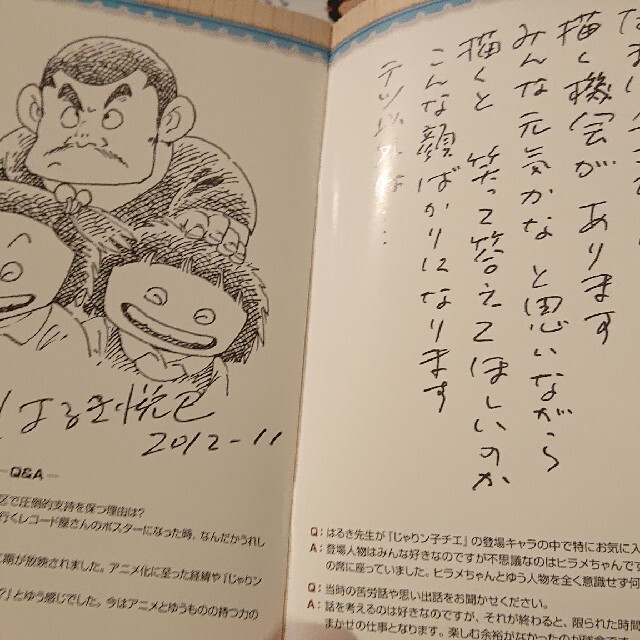 描く機会が あります
みんな元気かな と思いながら
描くと 笑って答えてほしいのか
こんな顔ばかりになります
はるき悦巳
2012-11
Q&A
で圧倒的支持を保つ理由は?
行くレコード屋さんのポスターになった時、なんだかうれし
期が放映されました。アニメ化に至った経緯や『じゃりン
?」とゆう感じでした。今はアニメとゆうものの持つ力の
Q:はるき先生が『じゃりン子チエ』の登場キャラの中で特にお気に入
A:登場人物はみんな好きなのですが不思議なのはヒラメちゃんです
の席に座っていました。ヒラメちゃんとゆう人物を全く意識せず何
Q:当時の苦労話や思い出話をお聞かせください。
A:話を考えるのは好きなのですが、それが終わると、限られた時間
まかせの仕事となります。楽しむ余裕がなかったのが